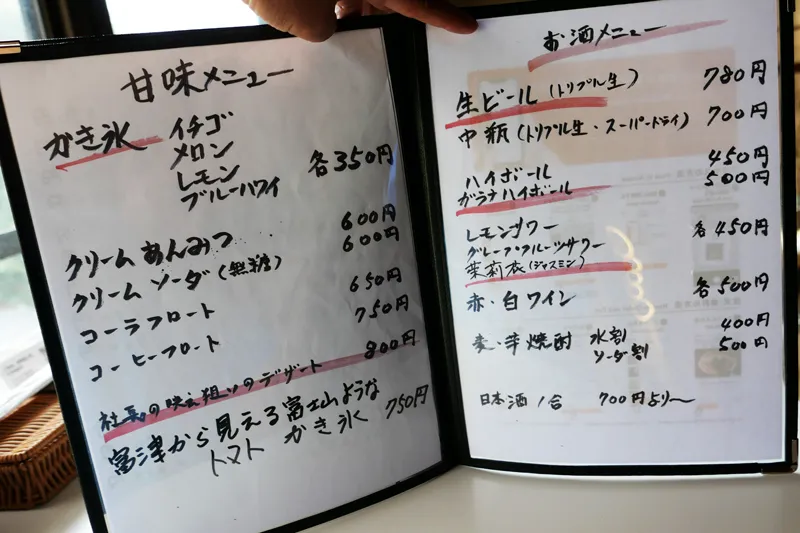 甘味メニュー
かき氷 イチゴ
メロン
レモン
ブルーハワイ
各350円
クリームあんみつ 600円
クリームソーダ(無糖) 600円
コーラフロート 650円
コーヒーフロート 750円
社長の映え狙いのデザート 800円
富津から見える富士山ような
トマト かき氷 750円
お酒メニュー
生ビール(トリプル生) 780円
中瓶(トリプル生・スーパードライ) 700円
ハイボール 450円
ガラナハイボール 500円
レモンサワー
グレープフルーツサワー 各450円
茉莉花(ジャスミン)
赤・白ワイン 各500円
麦・芋焼酎 水割 400円
ソーダ割 500円
日本酒1合 700円より〜